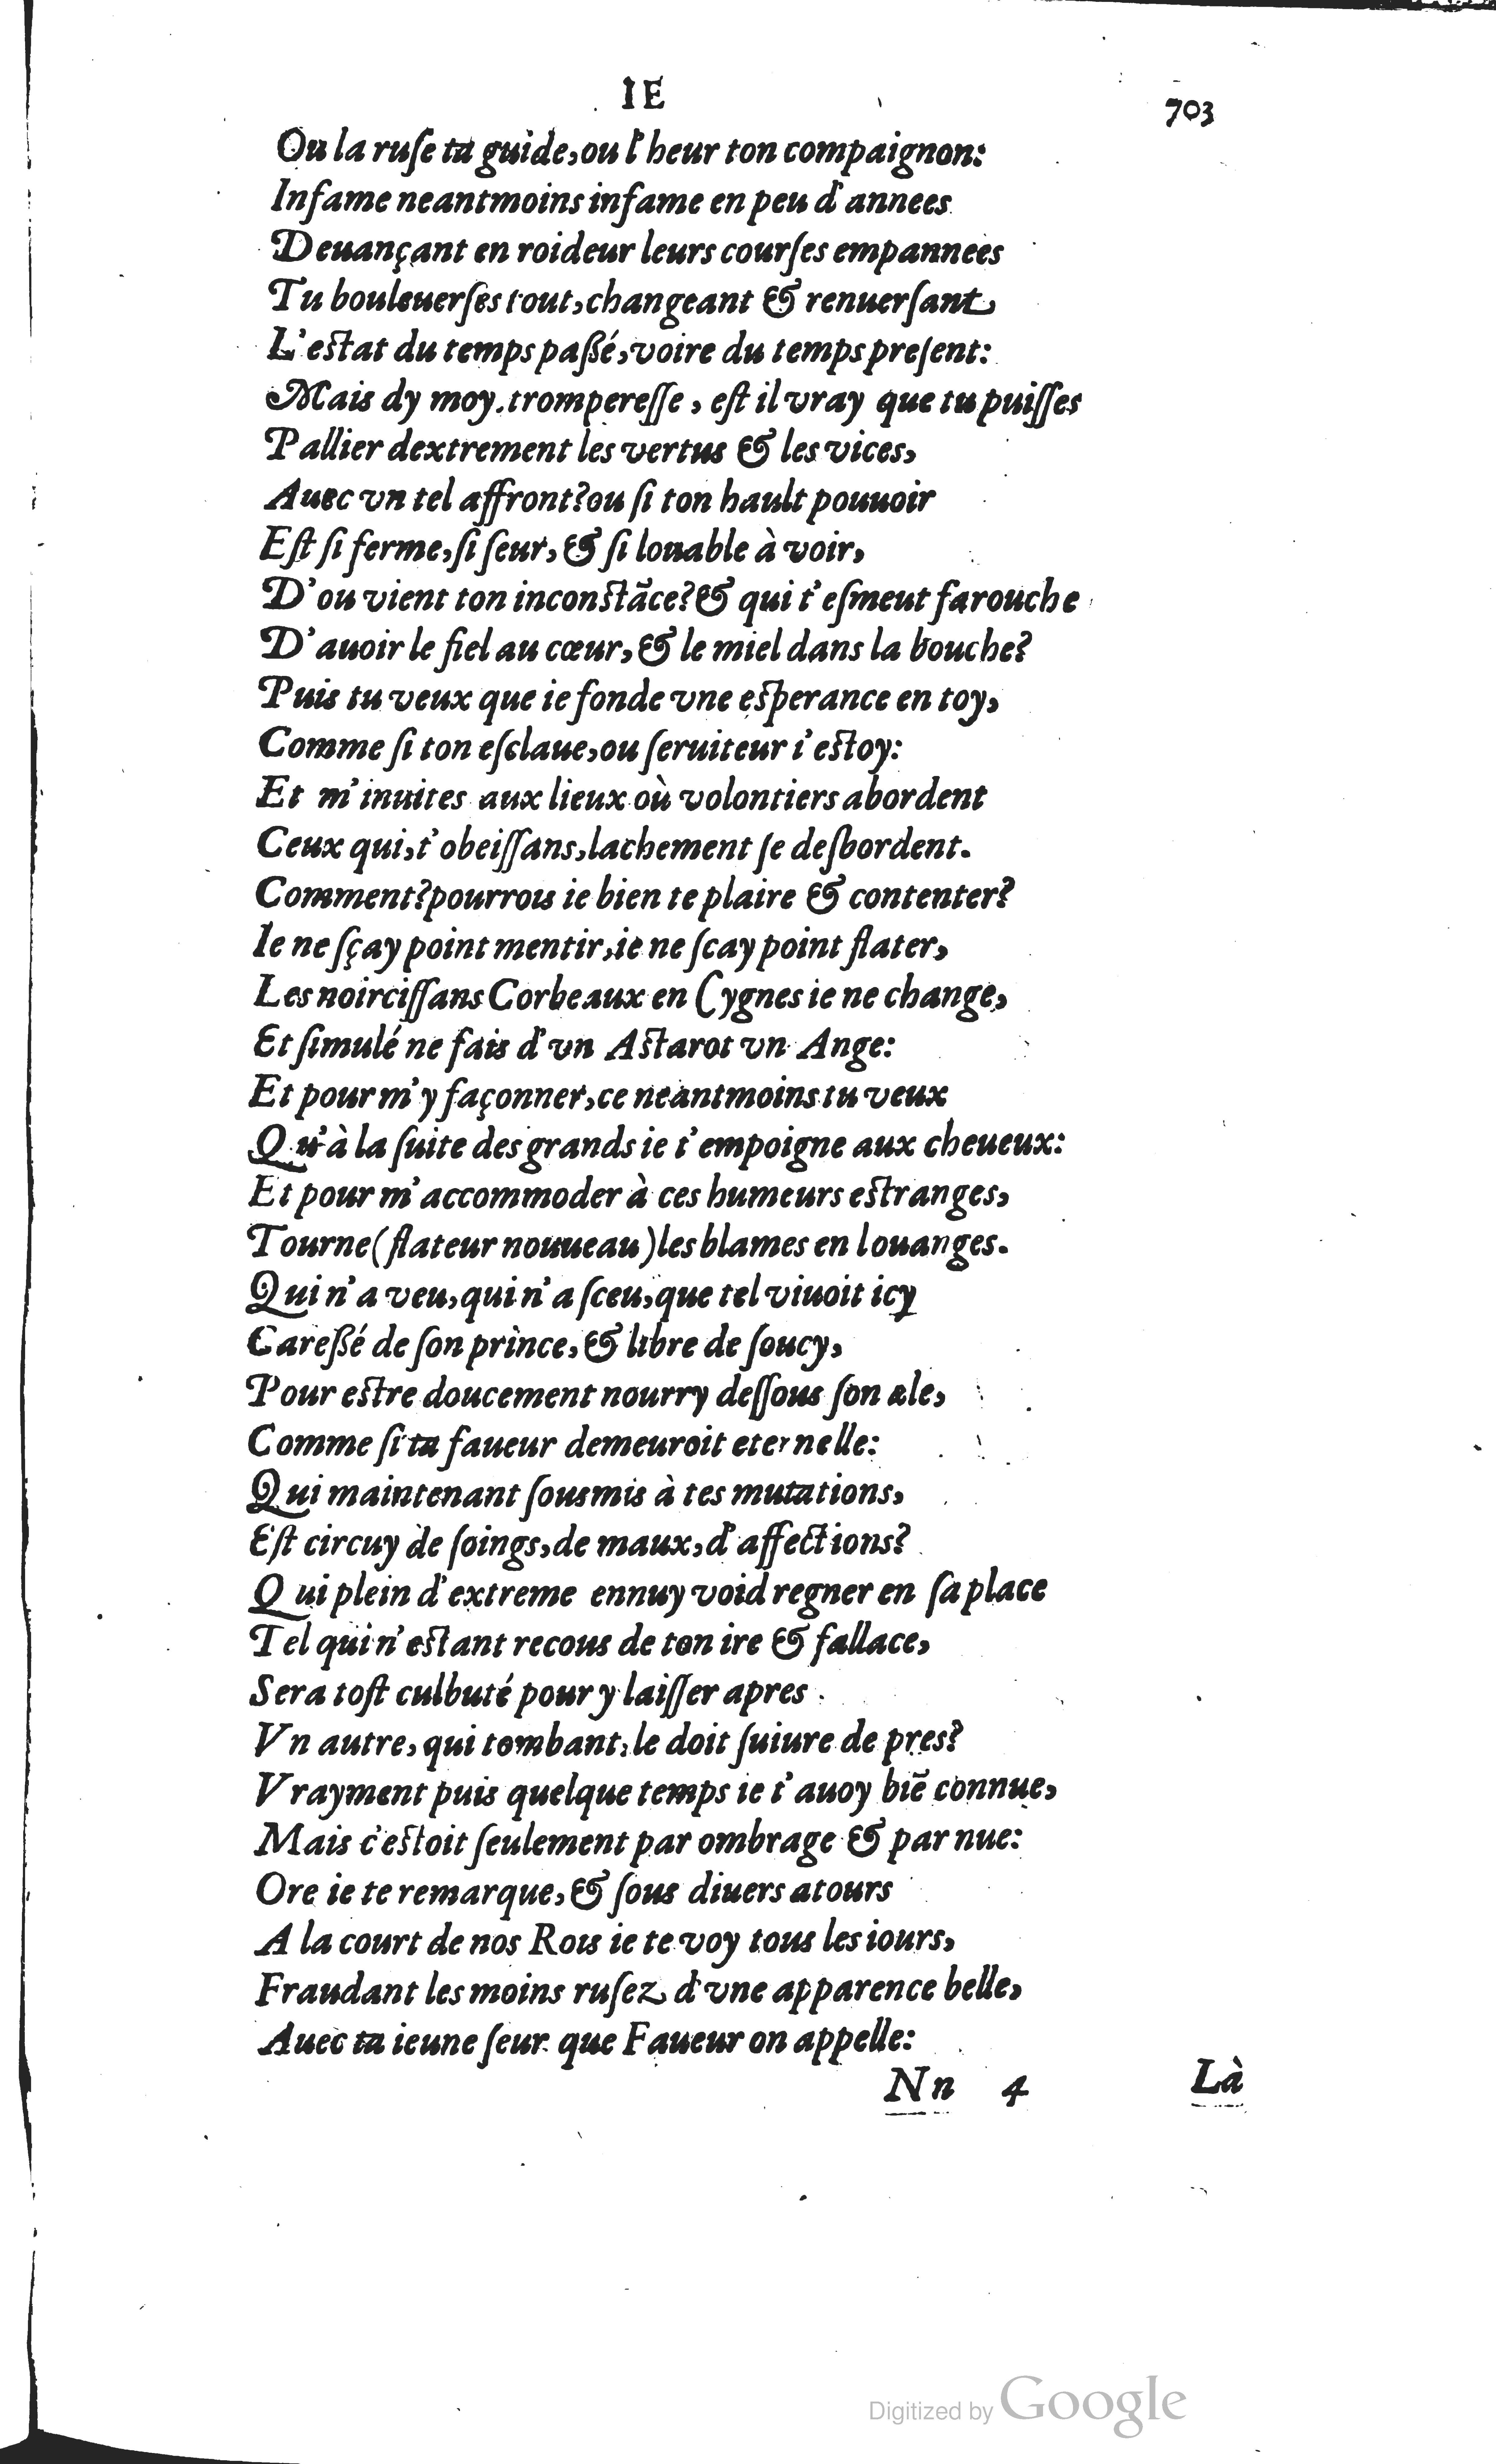 IE
703
Ou la ruſe ta guide, ou l'heur ton compaignon:
Infame neantmoins infame en peu d'annees
Deuançant en roideur leurs courſes empannees
Tu bouleuerſes tout, changeant & renuerſant
L'eſtat du temps paßé, voire du temps preſent:
Mais dy moy. tromperesſe, eſt il vray que tu puiſſes
Pallier dextrement les vertus & les vices,
Auec vn tel affront? ou ſi ton hault pouuoir
Eſt ſi ferme, ſi ſeur, & ſi louable à voir,
D'ou vient ton inconſtãce? & qui t'eſmeut farouche
D'auoir le fiel au cœur, & le miel dans la bouche?
Puis tu veux que ie fonde vne eſperance en toy,
Comme ſi ton eſclaue, ou ſeruiteur i'eſtoy:
Et m'inuites aux lieux où volontiers abordent
Ceux qui, t'obeiſſans, lachement ſe deſbordent.
Comment? pourrois ie bien te plaire & contenter?
Ie ne ſçay point mentir, ie ne ſcay point flater,
Les noirciſſans Corbeaux en Cygnes ie ne change,
Et ſimulé ne fais d'vn Aſtarot vn Ange:
Et pour m'y façonner, ce neantmoins tu veux
Qu'à la ſuite des grands ie t'empoigne aux cheueux:
Et pour m'accommoder à ces humeurs eſtranges,
Tourne (flateur nouueau) les blames en louanges.
Qui n'a veu, qui n'a ſceu, que tel viuoit icy
Careßé de ſon prince, & libre de ſoucy,
Pour eſtre doucement nourry deſſous ſon ale,
Comme ſi ta faueur demeuroit eternelle:
Qui maintenant ſousmis à tes mutations,
Eſt circuy de ſoings, de maux, d'affections?
Qui plein d'extreme ennuy void regner en ſa place
Tel qui n'eſtant recous de ton ire & fallace,
Sera toſt culbuté pour y laiſſer apres
Vn autre, qui tombant, le doit ſuiure de pres?
Vrayment puis quelque temps ie t'auoy biẽ connue,
Mais c'eſtoit ſeulement par ombrage & par nue:
Ore ie te remarque, & ſous diuers atours
A la court de nos Rois ie te voy tous les iours,
Fraudant les moins ruſez d'vne apparence belle,
Auec ta ieune ſeur que Faueur on appelle:
Nn 4
Là
Digitized by Google